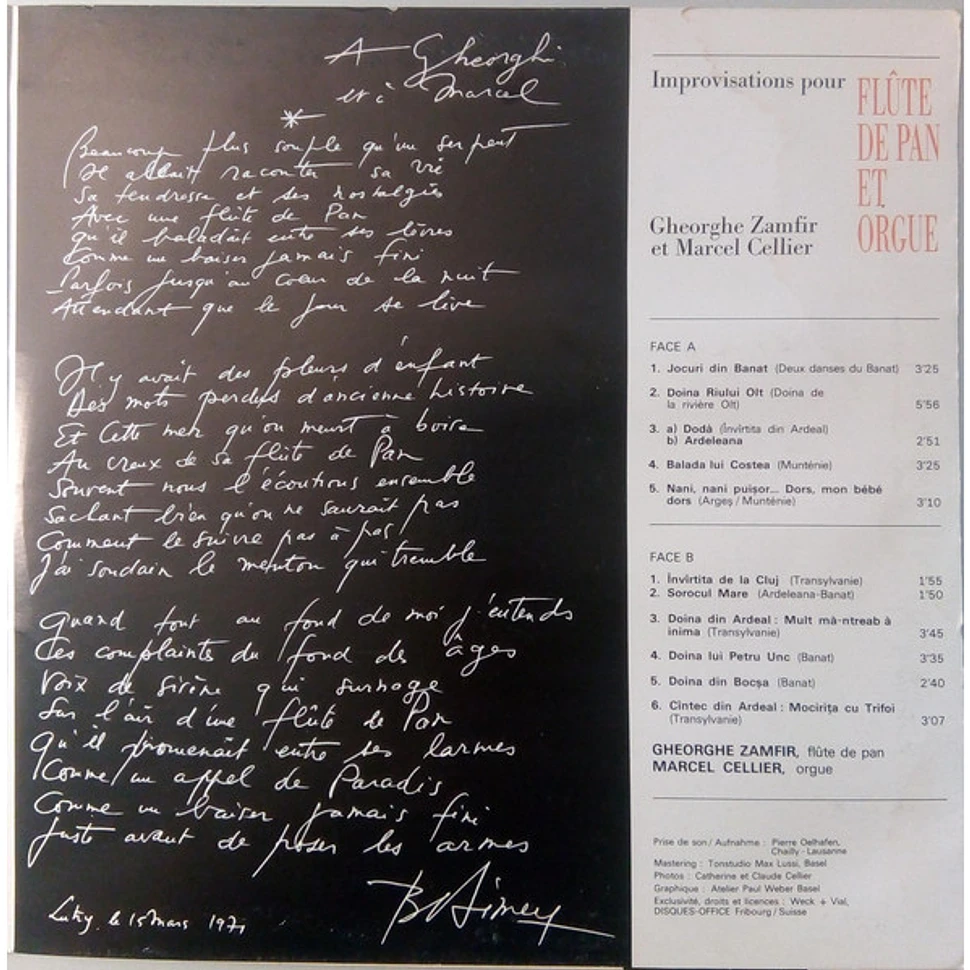 A Gheorghi
et à Marcel
*
Beaucoup plus souple qu'un serpent
Il allait raconter sa vie
Sa tendresse et ses nostalgies
Avec une flûte de Pan
qu'il baladait entre ses lèvres
Comme un baiser jamais fini
Parfois jusqu'au coeur de la nuit
Attendant que le jour se lève
Il y avait des pleurs d'enfant
Des mots perdus d'ancienne histoire
Et cette mer qu'on meurt à boire
Au creux de sa flûte de Pan
Souvent nous l'écoutions ensemble
Sachant bien qu'on ne saurait pas
Comment le suivre pas à pas
J'ai soudain le menton qui tremble
Quand tout au fond de moi j'entends
Ces complaintes du fond des âges
Voix de sirène qui surnage
Sur l'air d'une flûte de Pan
Qu'il promenait entre ses larmes
Comme un appel de Paradis
Comme un baiser jamais fini
Juste avant de poser les armes
Lutry, le 15 Mars 1971
Improvisations pour
FLÛTE
DE PAN
ET
ORGUE
Gheorghe Zamfir
et Marcel Cellier
FACE A
1. Jocuri din Banat (Deux danses du Banat) 3'25
2. Doina Riului Olt (Doina de
la rivière Olt) 5'56
3. a) Dodà (Învîrtita din Ardeal)
b) Ardeleana 2'51
4. Balada lui Costea (Munténie) 3'25
5. Nani, nani puișor... Dors, mon bébé
dors (Argeș / Munténie) 3'10
FACE B
1. Învîrtita de la Cluj (Transylvanie) 1'55
2. Sorocul Mare (Ardeleana-Banat) 1'50
3. Doina din Ardeal : Mult mà-ntreab à
inima (Transylvanie) 3'45
4. Doina lui Petru Unc (Banat) 3'35
5. Doina din Bocșa (Banat) 2'40
6. Cîntec din Ardeal : Mocirița cu Trifoi
(Transylvanie) 3'07
GHEORGHE ZAMFIR, flûte de pan
MARCEL CELLIER, orgue
Prise de son / Aufnahme : Pierre Oelhafen,
Chailly - Lausanne
Mastering : Tonstudio Max Lussi, Basel
Photos : Catherine et Claude Cellier
Graphique : Atelier Paul Weber Basel
Exclusivité, droits et licences : Weck + Vial,
DISQUES-OFFICE Fribourg / Suisse